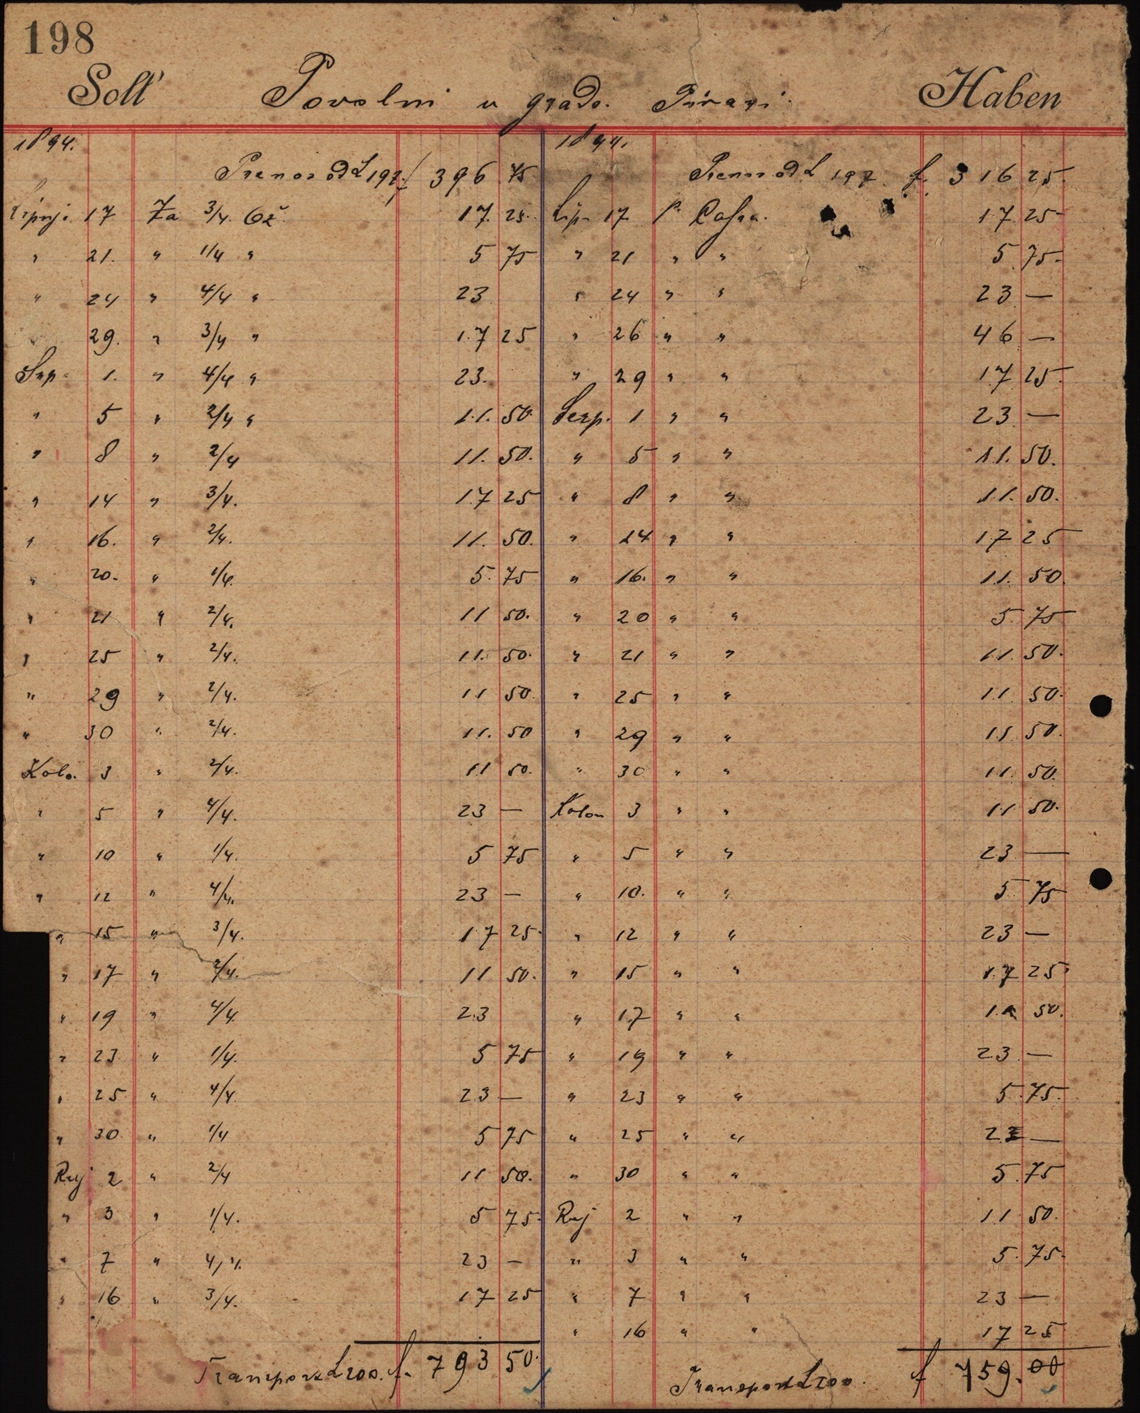 198
Soll Povolni u grado. Pivari. Haben
1894.
Prenos od L 197. f 396 75
Lipnj. 17 Za 3/4 Ož 17 25
" 21. " 1/4 " 5 75
" 24 " 4/4 " 23
29. " 3/4 " 17 25
Srp. 1. " 4/4 " 23.
" 5 " 2/4 " 11.50
" 8 " 2/4 11.50.
" 14 " 3/4. 17 25
" 16. " 2/4. 11.50.
" 20. " 1/4. 5.75
" 21 " 2/4. 11 50.
" 25 " 2/4. 11.50.
" 29 " 2/4. 11 50.
" 30 " 2/4. 11.50
Kolo. 3 " 2/4. 11 50.
" 5 " 4/4. 23 —
" 10 " 1/4. 5 75
" 12 " 4/4. 23 —
" 15 " 3/4. 17 25.
" 17 " 2/4. 11 50.
" 19 " 4/4. 23
" 23 " 1/4. 5 75
" 25 " 4/4. 23 —
" 30 " 1/4 5 75
Ruj 2 " 2/4 11 50.
" 3 " 1/4. 5 75.
" 7 " 4/4. 23 —
" 16 " 3/4. 17 25
Transport L 200. f. 793 50.
1894.
Prenos od L 197. f 316 25
Lip. 17 p. Cassa. 17 25
" 21 " " 5.75.
" 24 " " 23 —
" 26 " " 46 —
" 29 " " 17 25
Serp. 1 " " 23 —
" 5 " " 11.50.
" 8 " " 11.50.
" 14 " " 17 25
" 16. " " 11.50.
" 20 " " 5.75
" 21 " " 11.50.
" 25 " " 11 50.
" 29 " " 11 50.
" 30 " " 11.50.
Kolov 3 " " 11 50.
" 5 " " 23 —
" 10. " " 5 75
" 12 " " 23 —
" 15 " " 17 25
" 17 " " 11 50.
" 19 " " 23 —
" 23 " " 5.75.
" 25 " " 23 —
" 30 " " 5.75
Ruj 2 " " 11 50.
" 3 " " 5.75.
" 7 " " 23 —
" 16 " " 17 25
Transport L 200. f 759.00